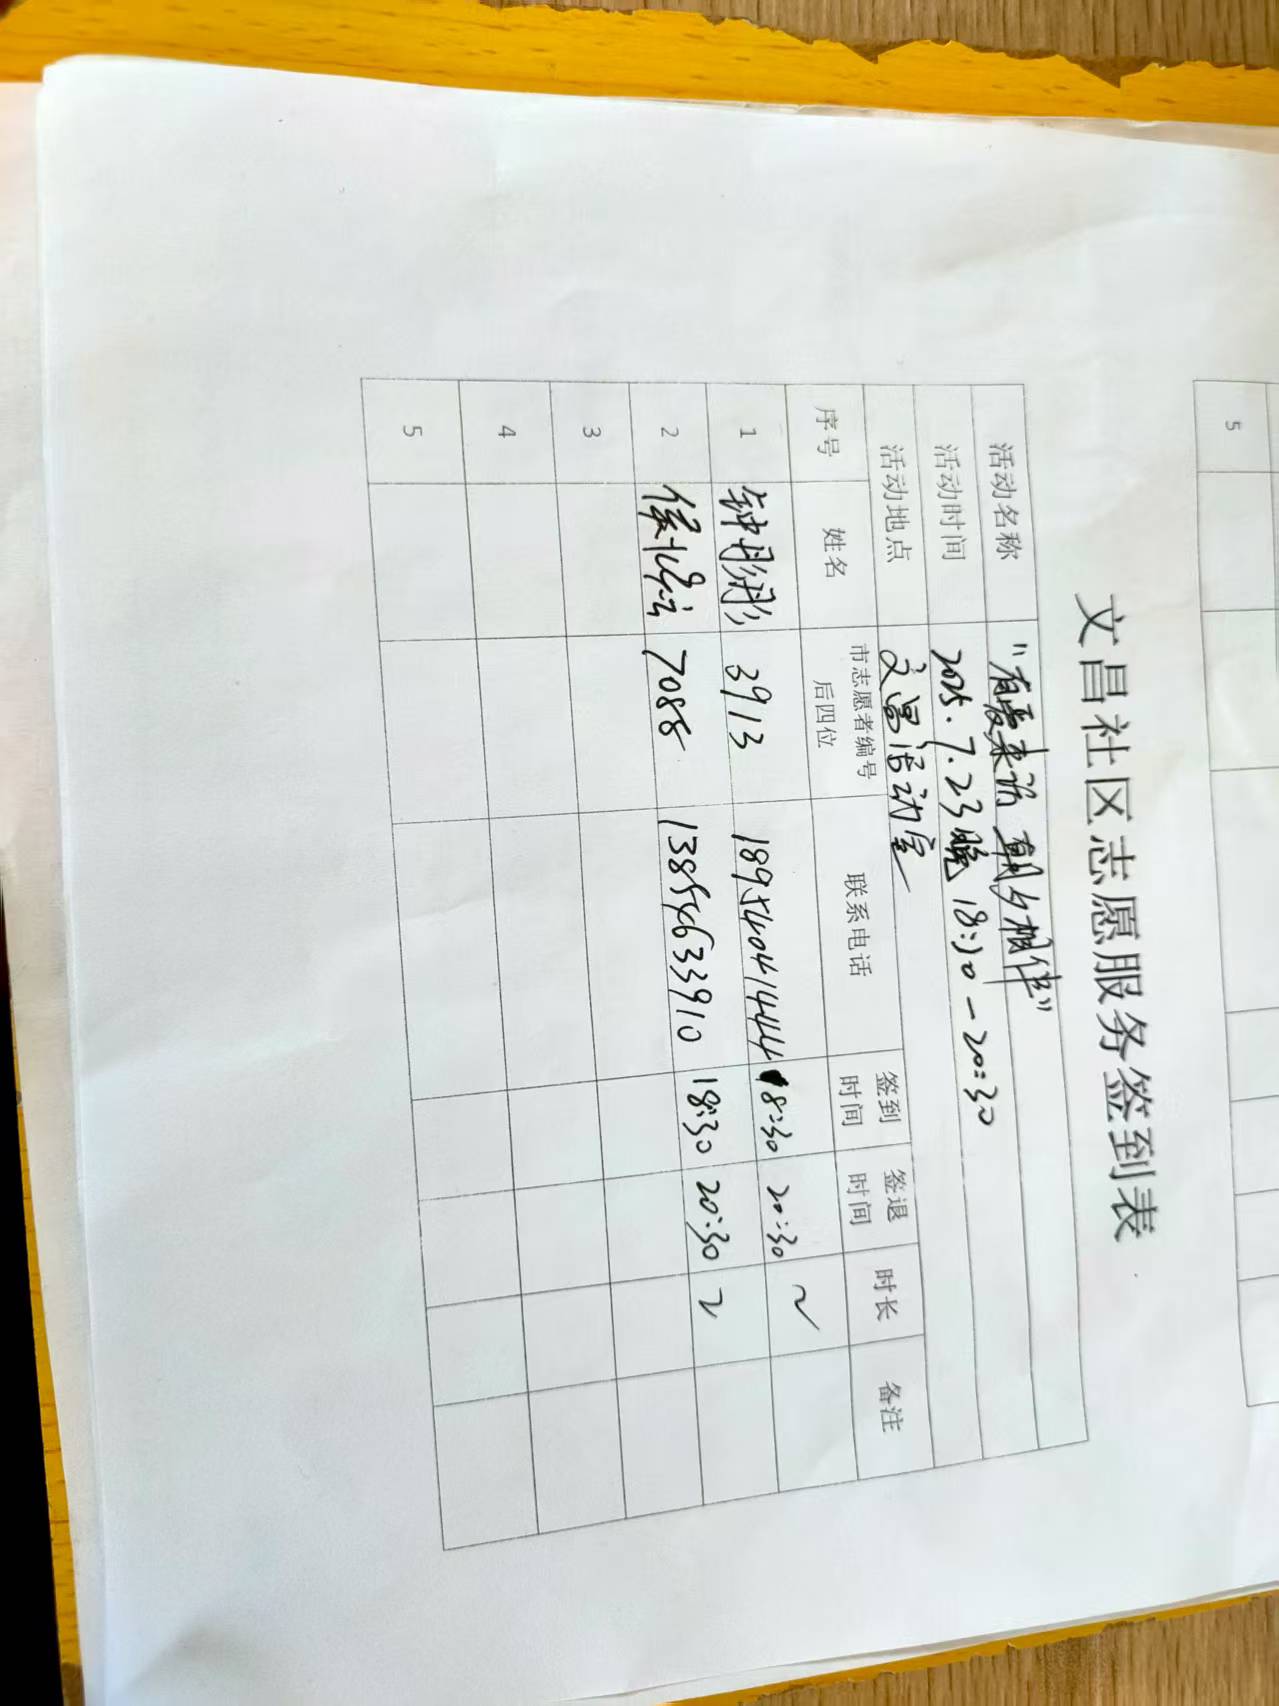 5
文昌社区志愿服务签到表
活动名称 "有爱来论 朝夕相伴"
活动时间 2025.7.23晚 18:30-20:30
活动地点 文昌活动室
序号 姓名 市志愿者编号后四位 联系电话 签到时间 签退时间 时长 备注
1 钟彤彤 3913 18954041444 18:30 20:30 2
2 7088 13854633910 18:30 20:30 2
3
4
5